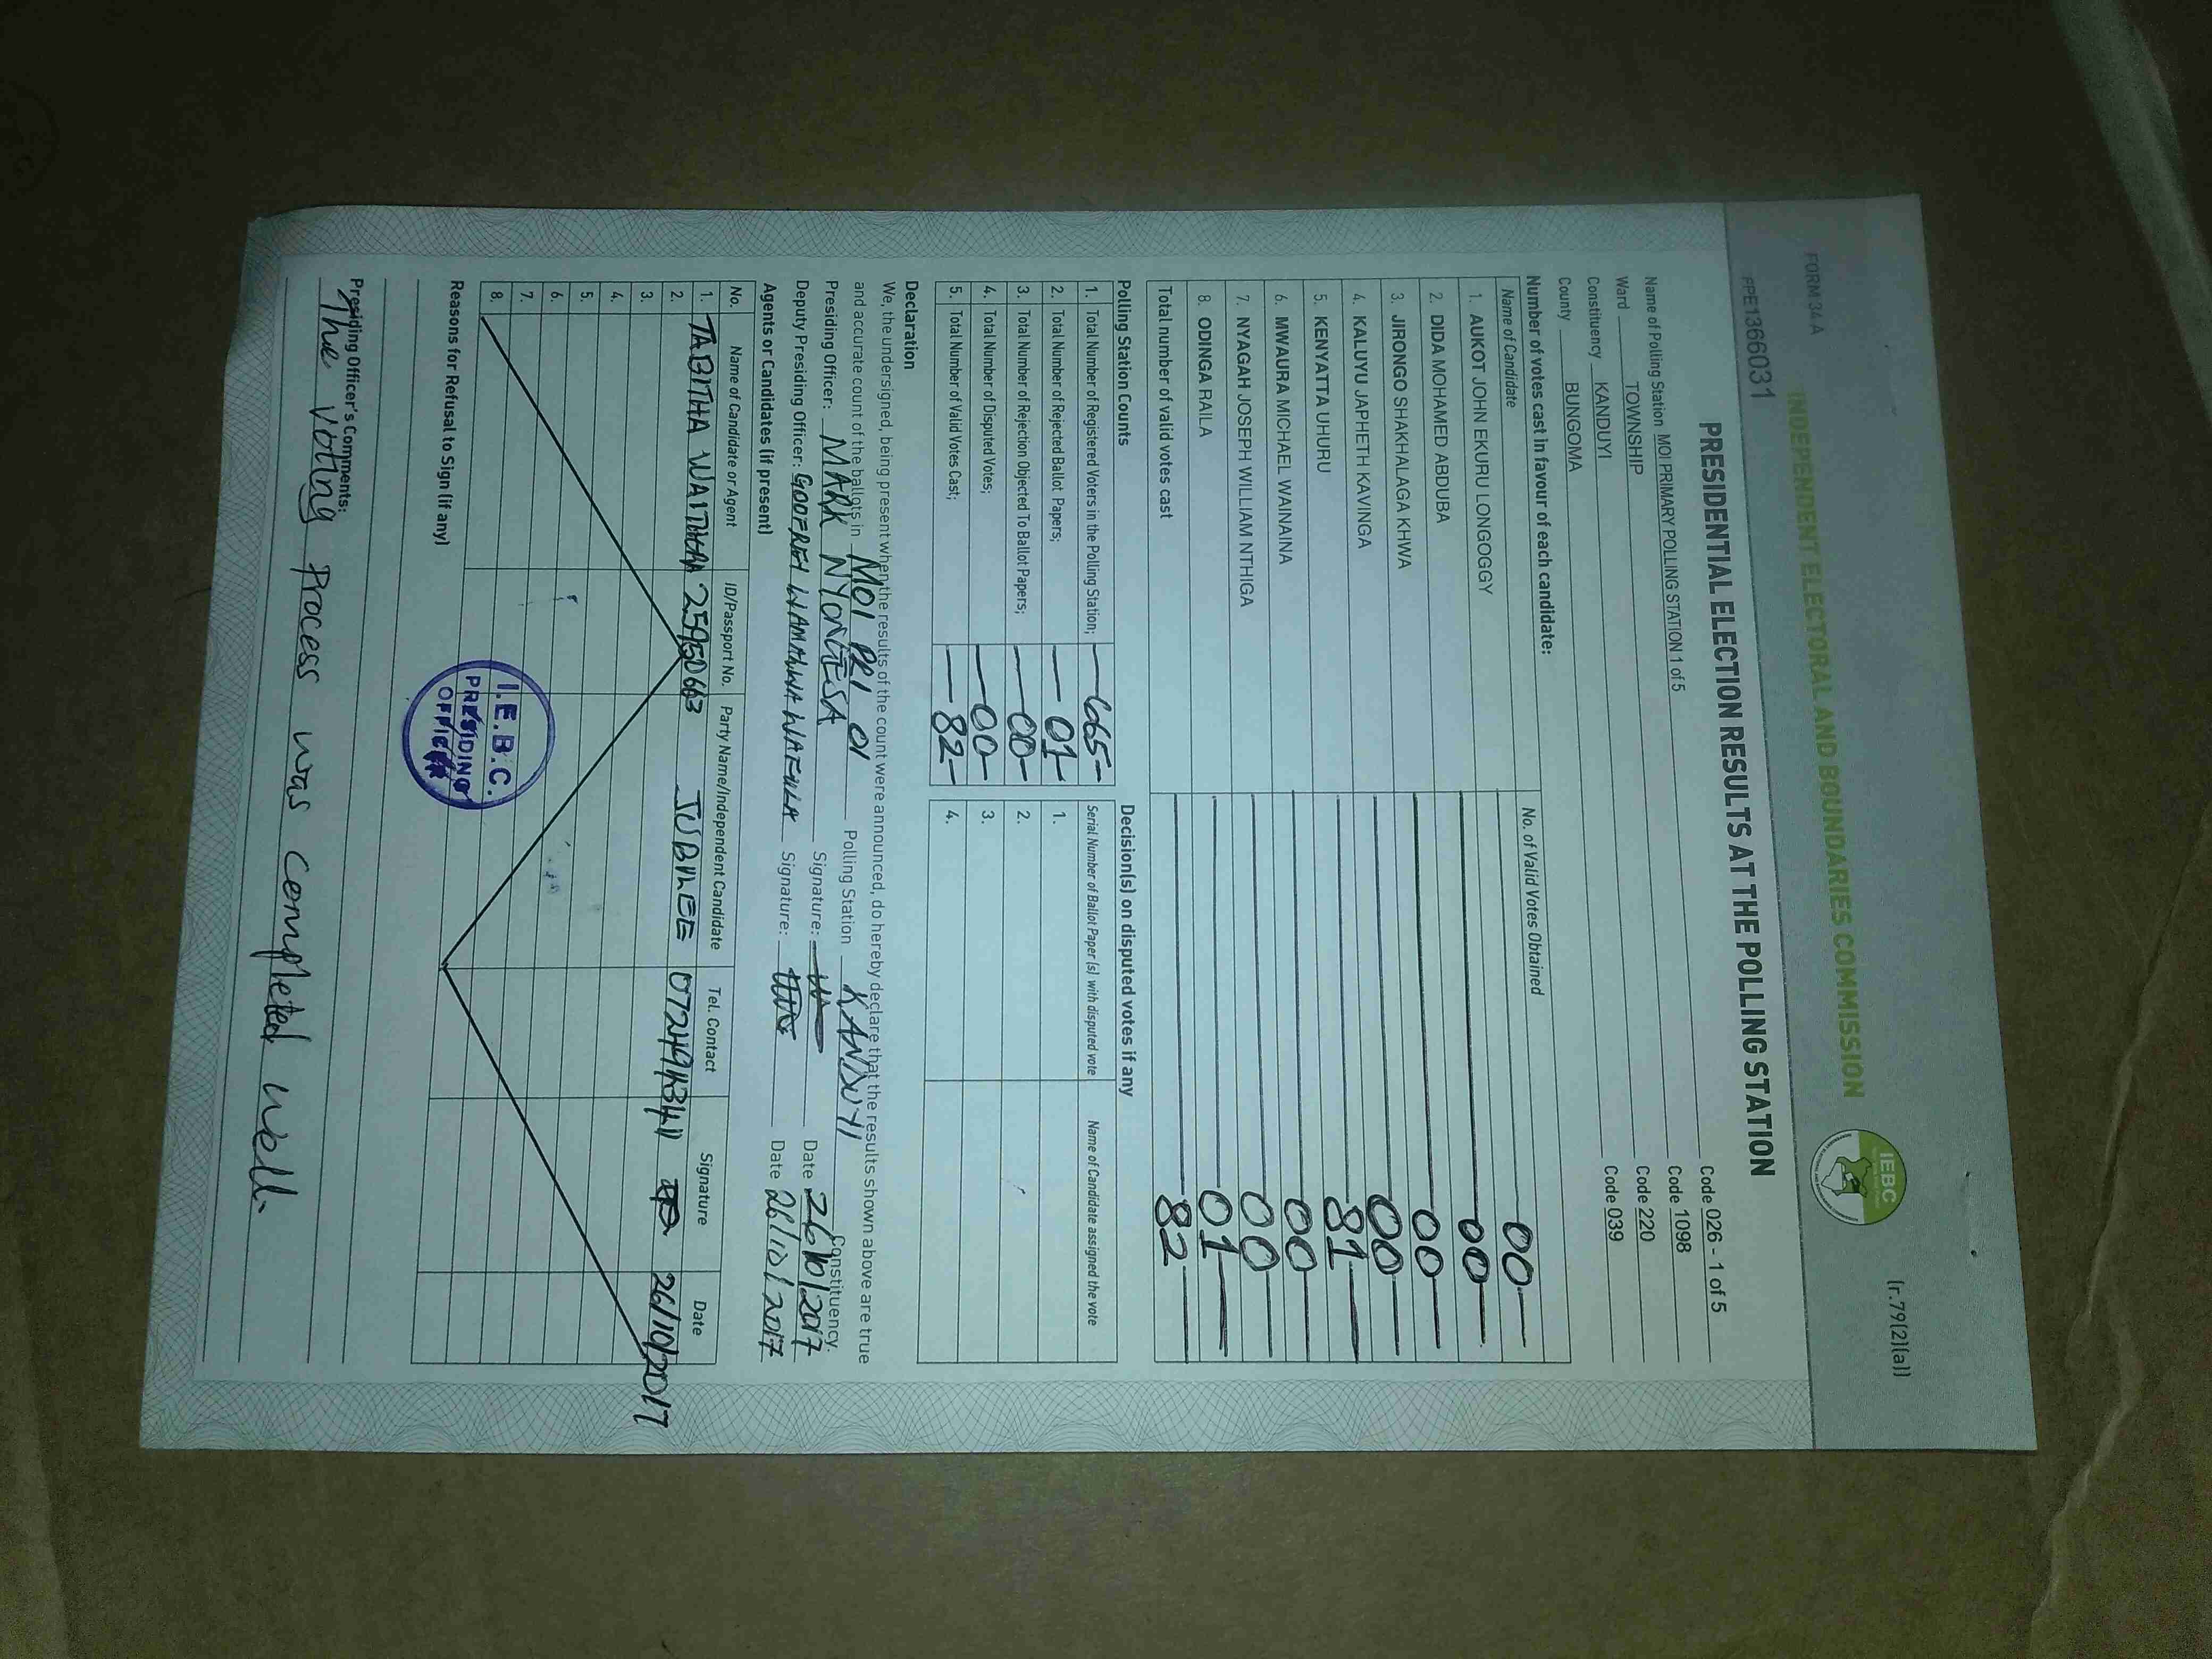 FORM 34 A
(r.79(2)(a))
INDEPENDENT ELECTORAL AND BOUNDARIES COMMISSION
IEBC
PPE1366031
PRESIDENTIAL ELECTION RESULTS AT THE POLLING STATION
Name of Polling Station MOI PRIMARY POLLING STATION 1 of 5 Code 026 - 1 of 5
Ward TOWNSHIP Code 1098
Constituency KANDUYI Code 220
County BUNGOMA Code 039
Number of votes cast in favour of each candidate:
Name of Candidate No. of Valid Votes Obtained
1. AUKOT JOHN EKURU LONGOGGY 00
2. DIDA MOHAMED ABDUBA 00
3. JIRONGO SHAKHALAGA KHWA 00
4. KALUYU JAPHETH KAVINGA 00
5. KENYATTA UHURU 81
6. MWAURA MICHAEL WAINAINA 00
7. NYAGAH JOSEPH WILLIAM NTHIGA 00
8. ODINGA RAILA 01
Total number of valid votes cast 82
Polling Station Counts
1. Total Number of Registered Voters in the Polling Station; 665
2. Total Number of Rejected Ballot Papers; 01
3. Total Number of Rejection Objected To Ballot Papers; 00
4. Total Number of Disputed Votes; 00
5. Total Number of Valid Votes Cast; 82
Decision(s) on disputed votes if any
Serial Number of Ballot Paper (s) with disputed vote Name of Candidate assigned the vote
1.
2.
3.
4.
Declaration
We, the undersigned, being present when the results of the count were announced, do hereby declare that the results shown above are true
and accurate count of the ballots in MOI PRI 01 Polling Station KANDUYI Constituency.
Presiding Officer: MARK NYONGESA Signature: Date 26/10/2017
Deputy Presiding Officer: GODFREY WAMALWA WAFULA Signature: Date 26/10/2017
Agents or Candidates (if present)
No. Name of Candidate or Agent ID/Passport No. Party Name/Independent Candidate Tel. Contact Signature Date
1. TABITHA 25950663 JUBILEE 26/10/2017
2.
3
4.
5.
6.
7.
8.
I.E.B.C.
PRESIDING
OFFICER
Reasons for Refusal to Sign (if any)
Presiding Officer's Comments:
The voting process was completed well.